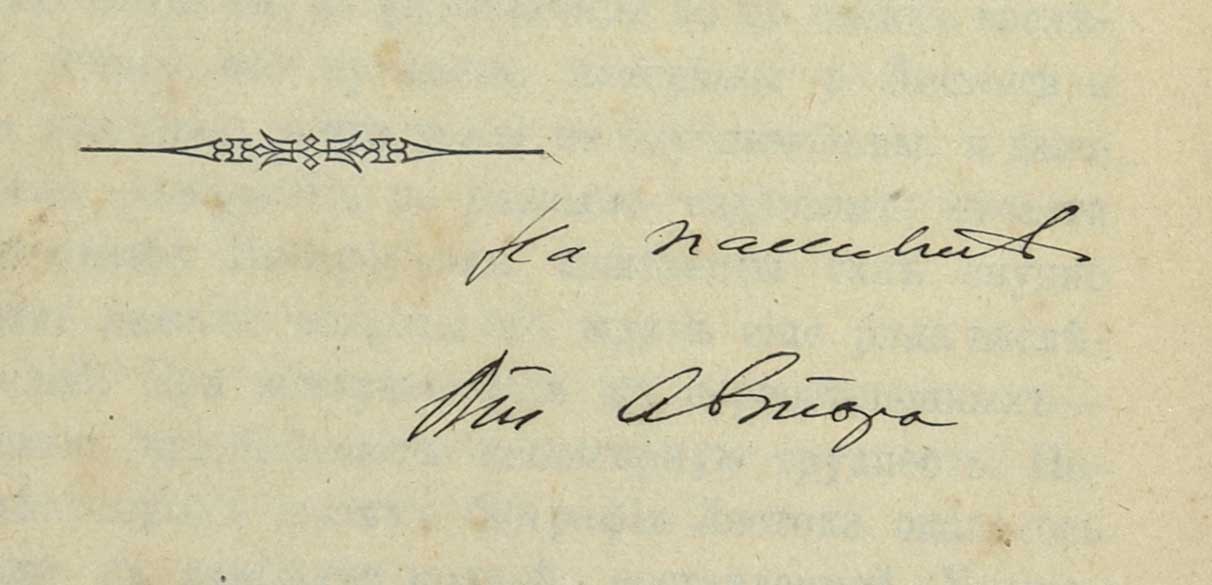 На память
Отъ Автора